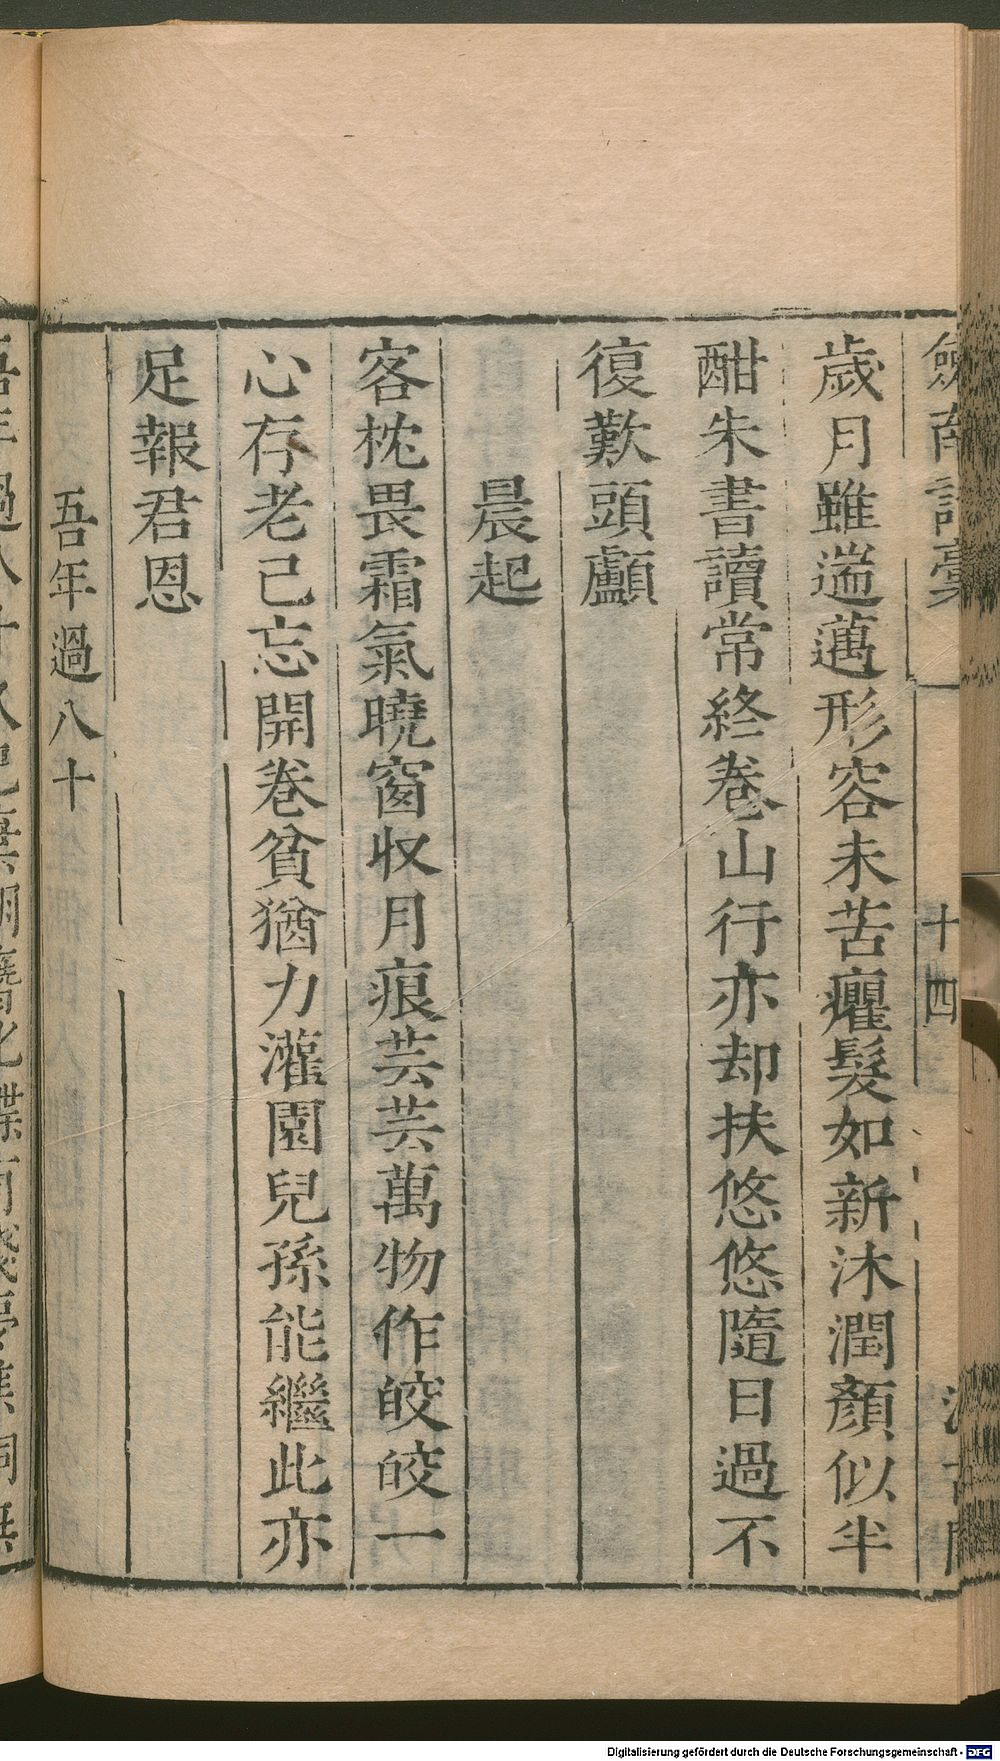 劔南詩藁
十四
歲月雖遄邁形容未苦癯髮如新沐潤顏似半
酣朱書讀常終卷山行亦却扶悠悠隨日過不
復歎頭顱
晨起
客枕畏霜氣曉窗收月痕芸芸萬物作皎皎一
心存老已忘開卷貧猶力灌園兒孫能繼此亦
足報君恩
吾年過八十
Digitalisierung gefördert durch die Deutsche Forschungsgemeinschaft - DFG